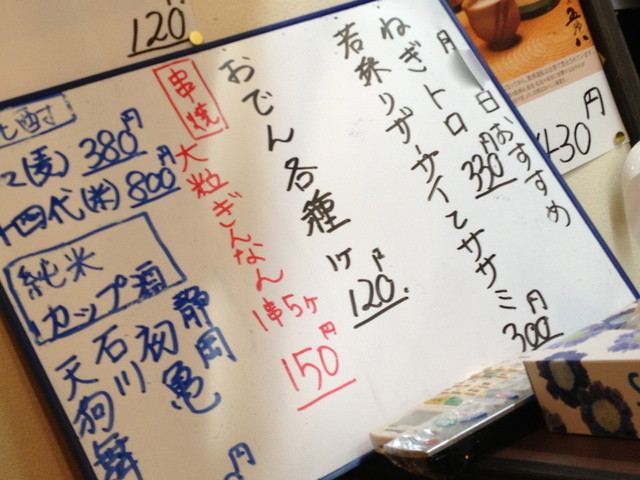 月 日 おすすめ
ねぎトロ 330円
若採りザーサイとササミ 300円
おでん各種 1ケ 120円
串焼
大粒ぎんなん 1串5ケ 150円
(麦) 380円
十四代(米) 800円
純米
カップ酒
静岡
初亀
石川
天狗舞
円
120
430円